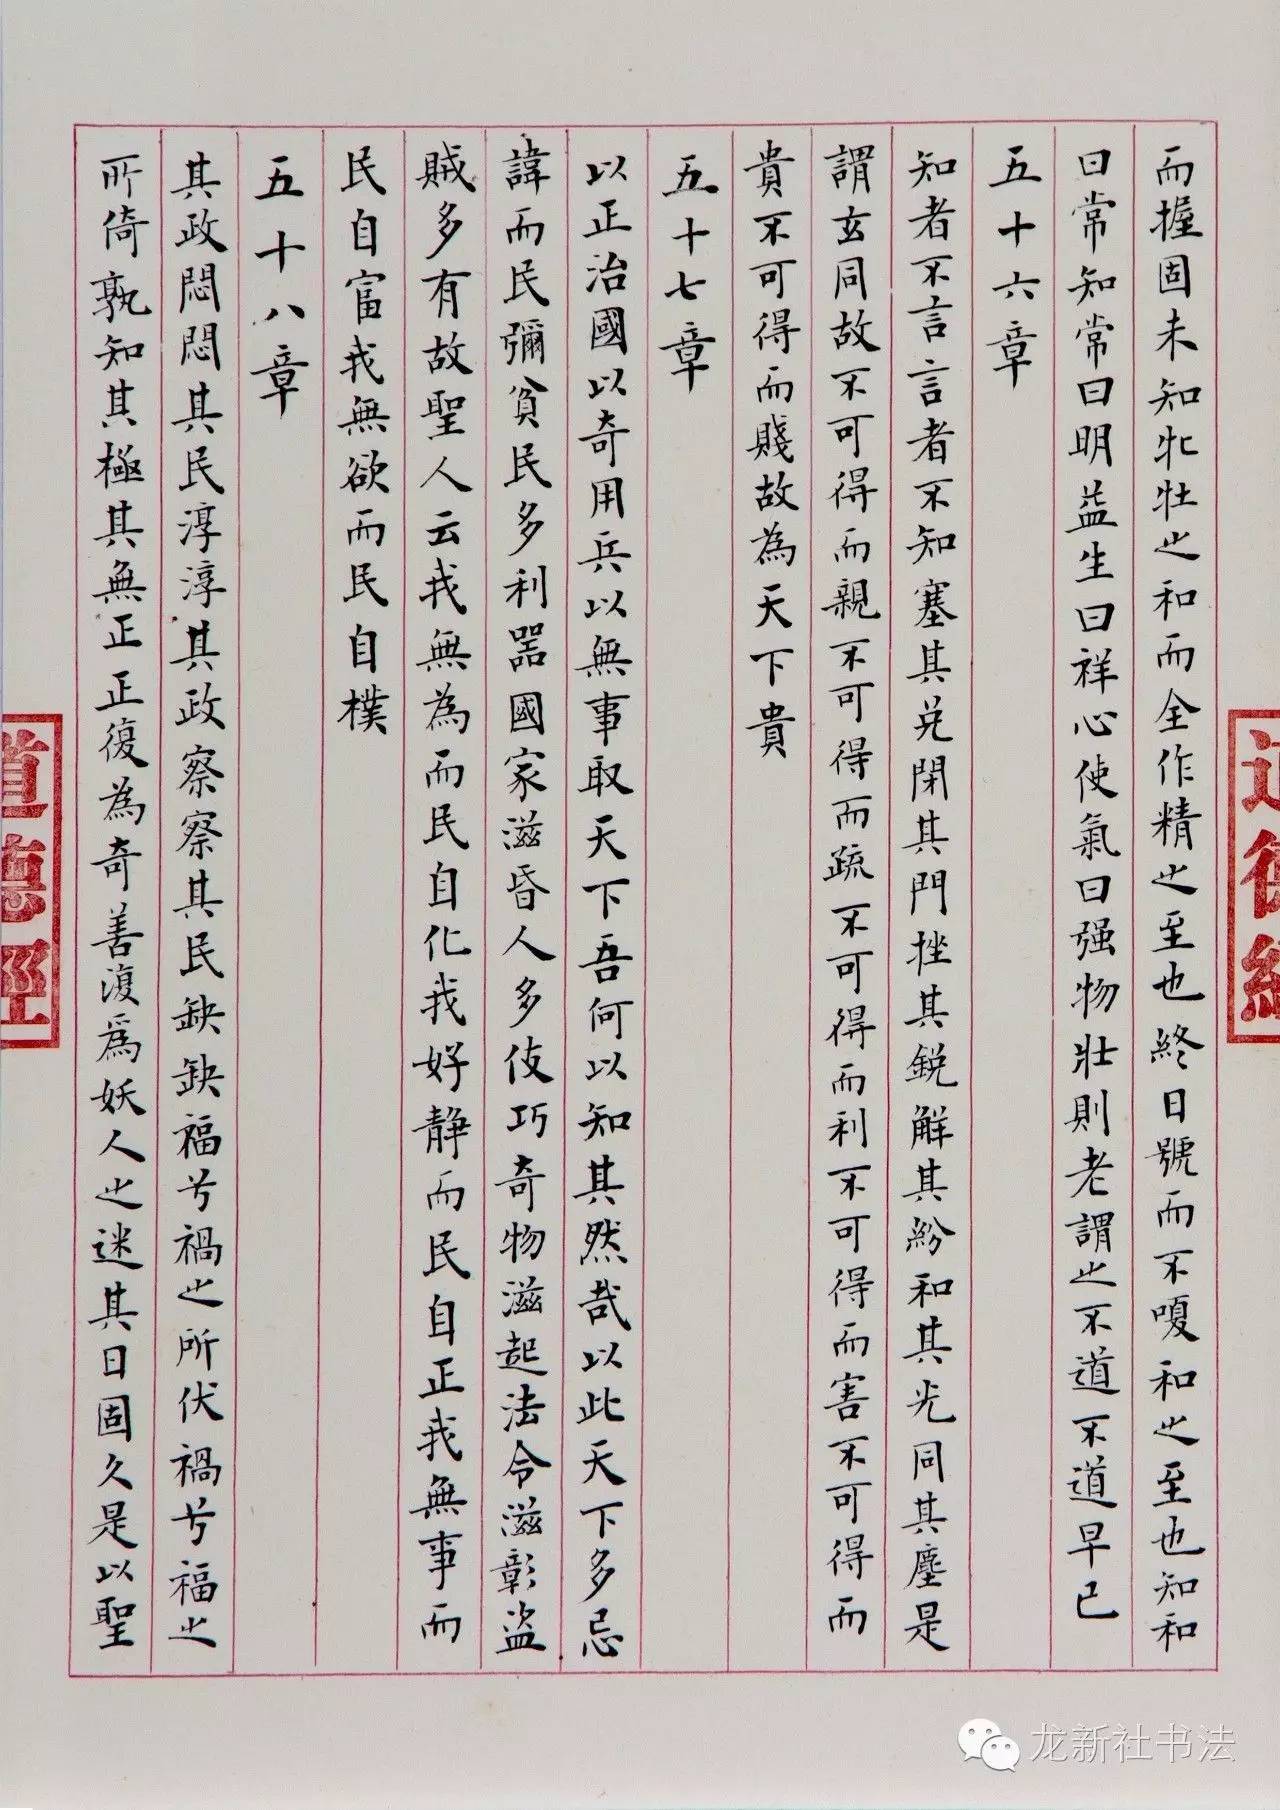 而握固未知牝牡之和而全作精之至也終日號而不嗄和之至也知和
曰常知常曰明益生曰祥心使氣曰强物壯則老謂之不道不道早已
五十六章
知者不言言者不知塞其兑閉其門挫其銳解其紛和其光同其塵是
謂玄同故不可得而親不可得而疏不可得而利不可得而害不可得而
貴不可得而賤故為天下貴
五十七章
以正治國以奇用兵以無事取天下吾何以知其然哉以此天下多忌
諱而民彌貧民多利器國家滋昏人多伎巧奇物滋起法令滋彰盜
賊多有故聖人云我無為而民自化我好静而民自正我無事而
民自富我無欲而民自樸
五十八章
其政悶悶其民淳淳其政察察其民缺缺福兮禍之所伏禍兮福之
所倚孰知其極其無正正復為奇善復爲妖人之迷其日固久是以聖
道德經
道德經
龙新社书法